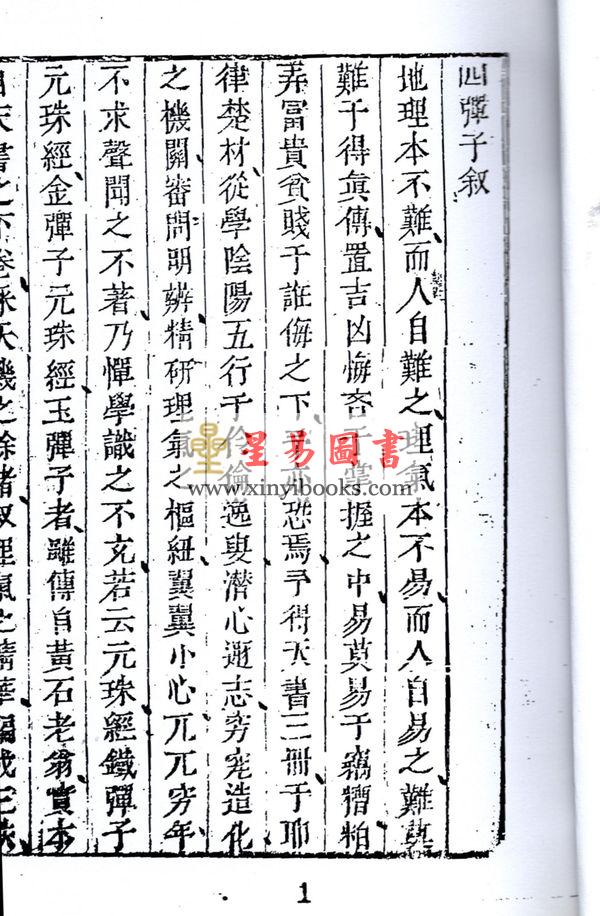 四彈子叙
地理本不難而人自難之理氣本不易而人自易之難莫
難于得眞傳置吉凶悔吝于掌握之中易莫易于竊糟粕
弄富貴貧賤于誑侮之下 恐焉予得天書三冊于耶
律楚材從學陰陽五行于伶倫逸叟潛心遜志窮究造化
之機關審問明辨精研理氣之樞紐翼翼小心兀兀窮年
不求聲聞之不著乃憚學識之不充若云元珠經鐵彈子
元珠經金彈子元珠經玉彈子者雖傳自黃石老翁實本
天書之 卷 天機之餘緒叙理氣之精華編成
星易圖書
www.xinyibooks.com
1